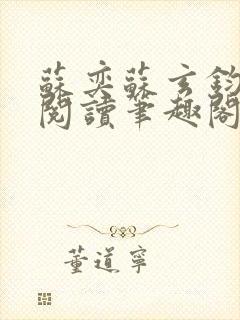 蘇奕蘇玄鈞
閱讀筆趣閣
董道寧